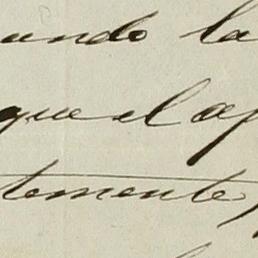 undo la
que el ap
temente,